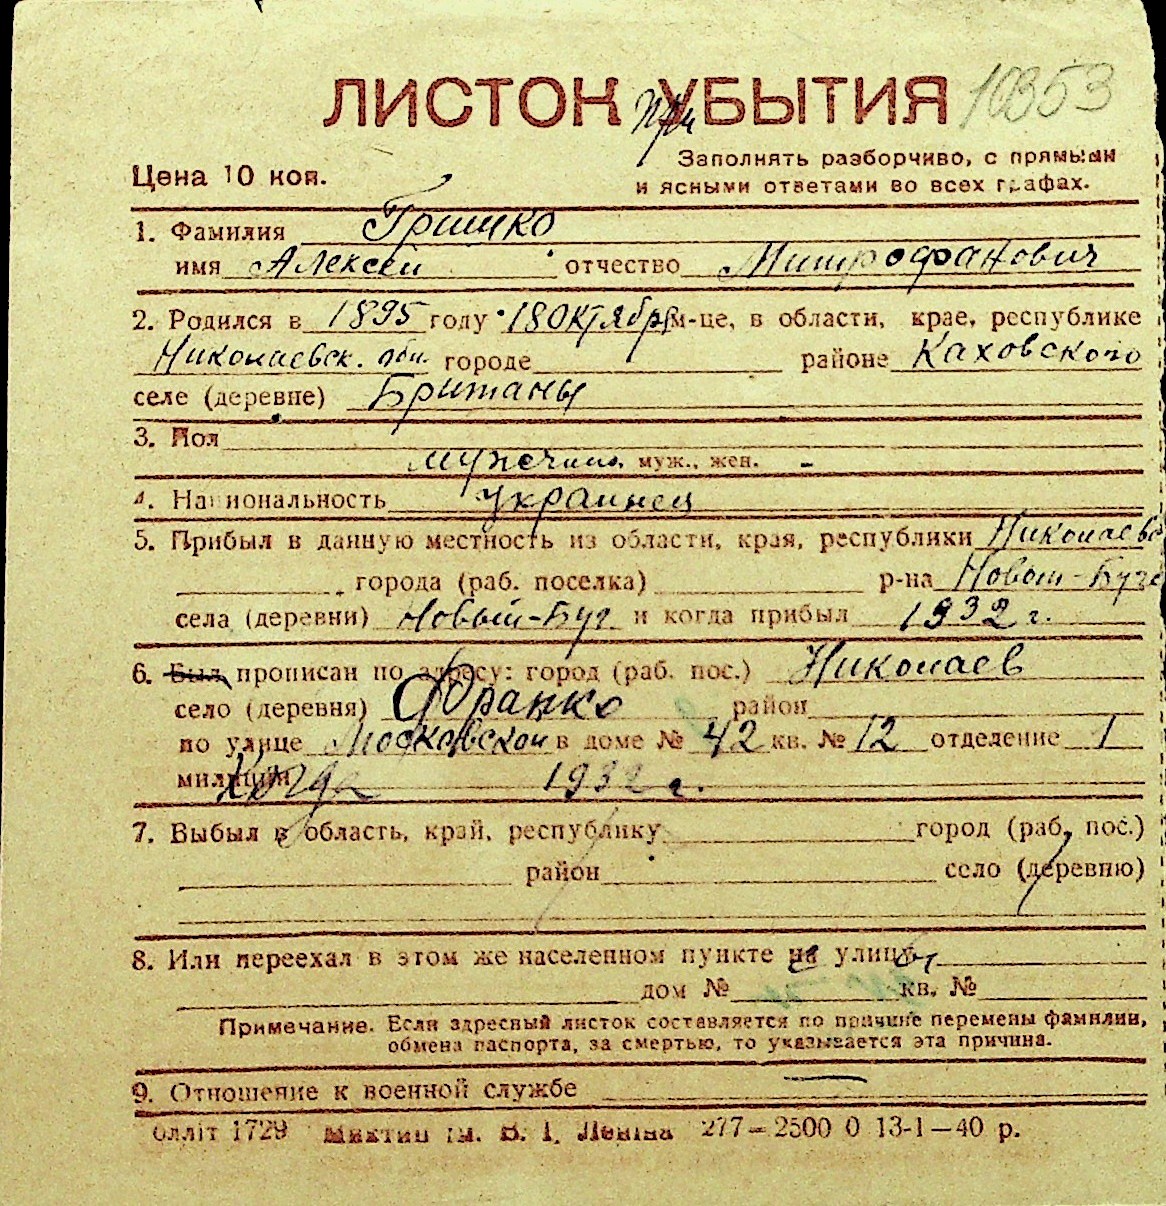 ЛИСТОК УБЫТИЯ 10353
При
Цена 10 коп.
Заполнять разборчиво, с прямыми
и ясными ответами во всех графах.
1. Фамилия Гришко
имя Алексей отчество Митрофанович
2. Родился в 1895 году 18 октября м-це, в области, крае, республике
Николаевск. обл. городе районе Каховского
селе (деревне) Британы
3. Пол
мужчина, муж., жен. -
4. Национальность украинец
5. Прибыл в данную местность из области, края, республики Николаевс
города (раб. поселка) р-на Новый-Буг
села (деревни) Новый-Буг и когда прибыл 1932 г.
6. Был прописан по адресу: город (раб. пос.) Николаев
село (деревня) Франко район
по улице Московской в доме № 42 кв. № 12 отделение 1
милиции Когда 1932 г.
7. Выбыл в область, край, республику город (раб. пос.)
район село (деревню)
8. Или переехал в этом же населенном пункте на улицу
дом № кв. №
Примечание. Если адресный листок составляется по причине перемены фамилии,
обмена паспорта, за смертью, то указывается эта причина.
9. Отношение к военной службе —
Олліт 1729 ім. В. І. Леніна 277—2500 0 13-1—40 р.